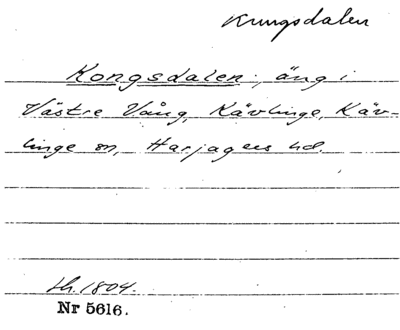 Kungsdalen
Kongsdalen, äng i
Västre Vång, Kävlinge, Käv-
linge sn, Harjagers hd.
Lh. 1804.
Nr 5616.